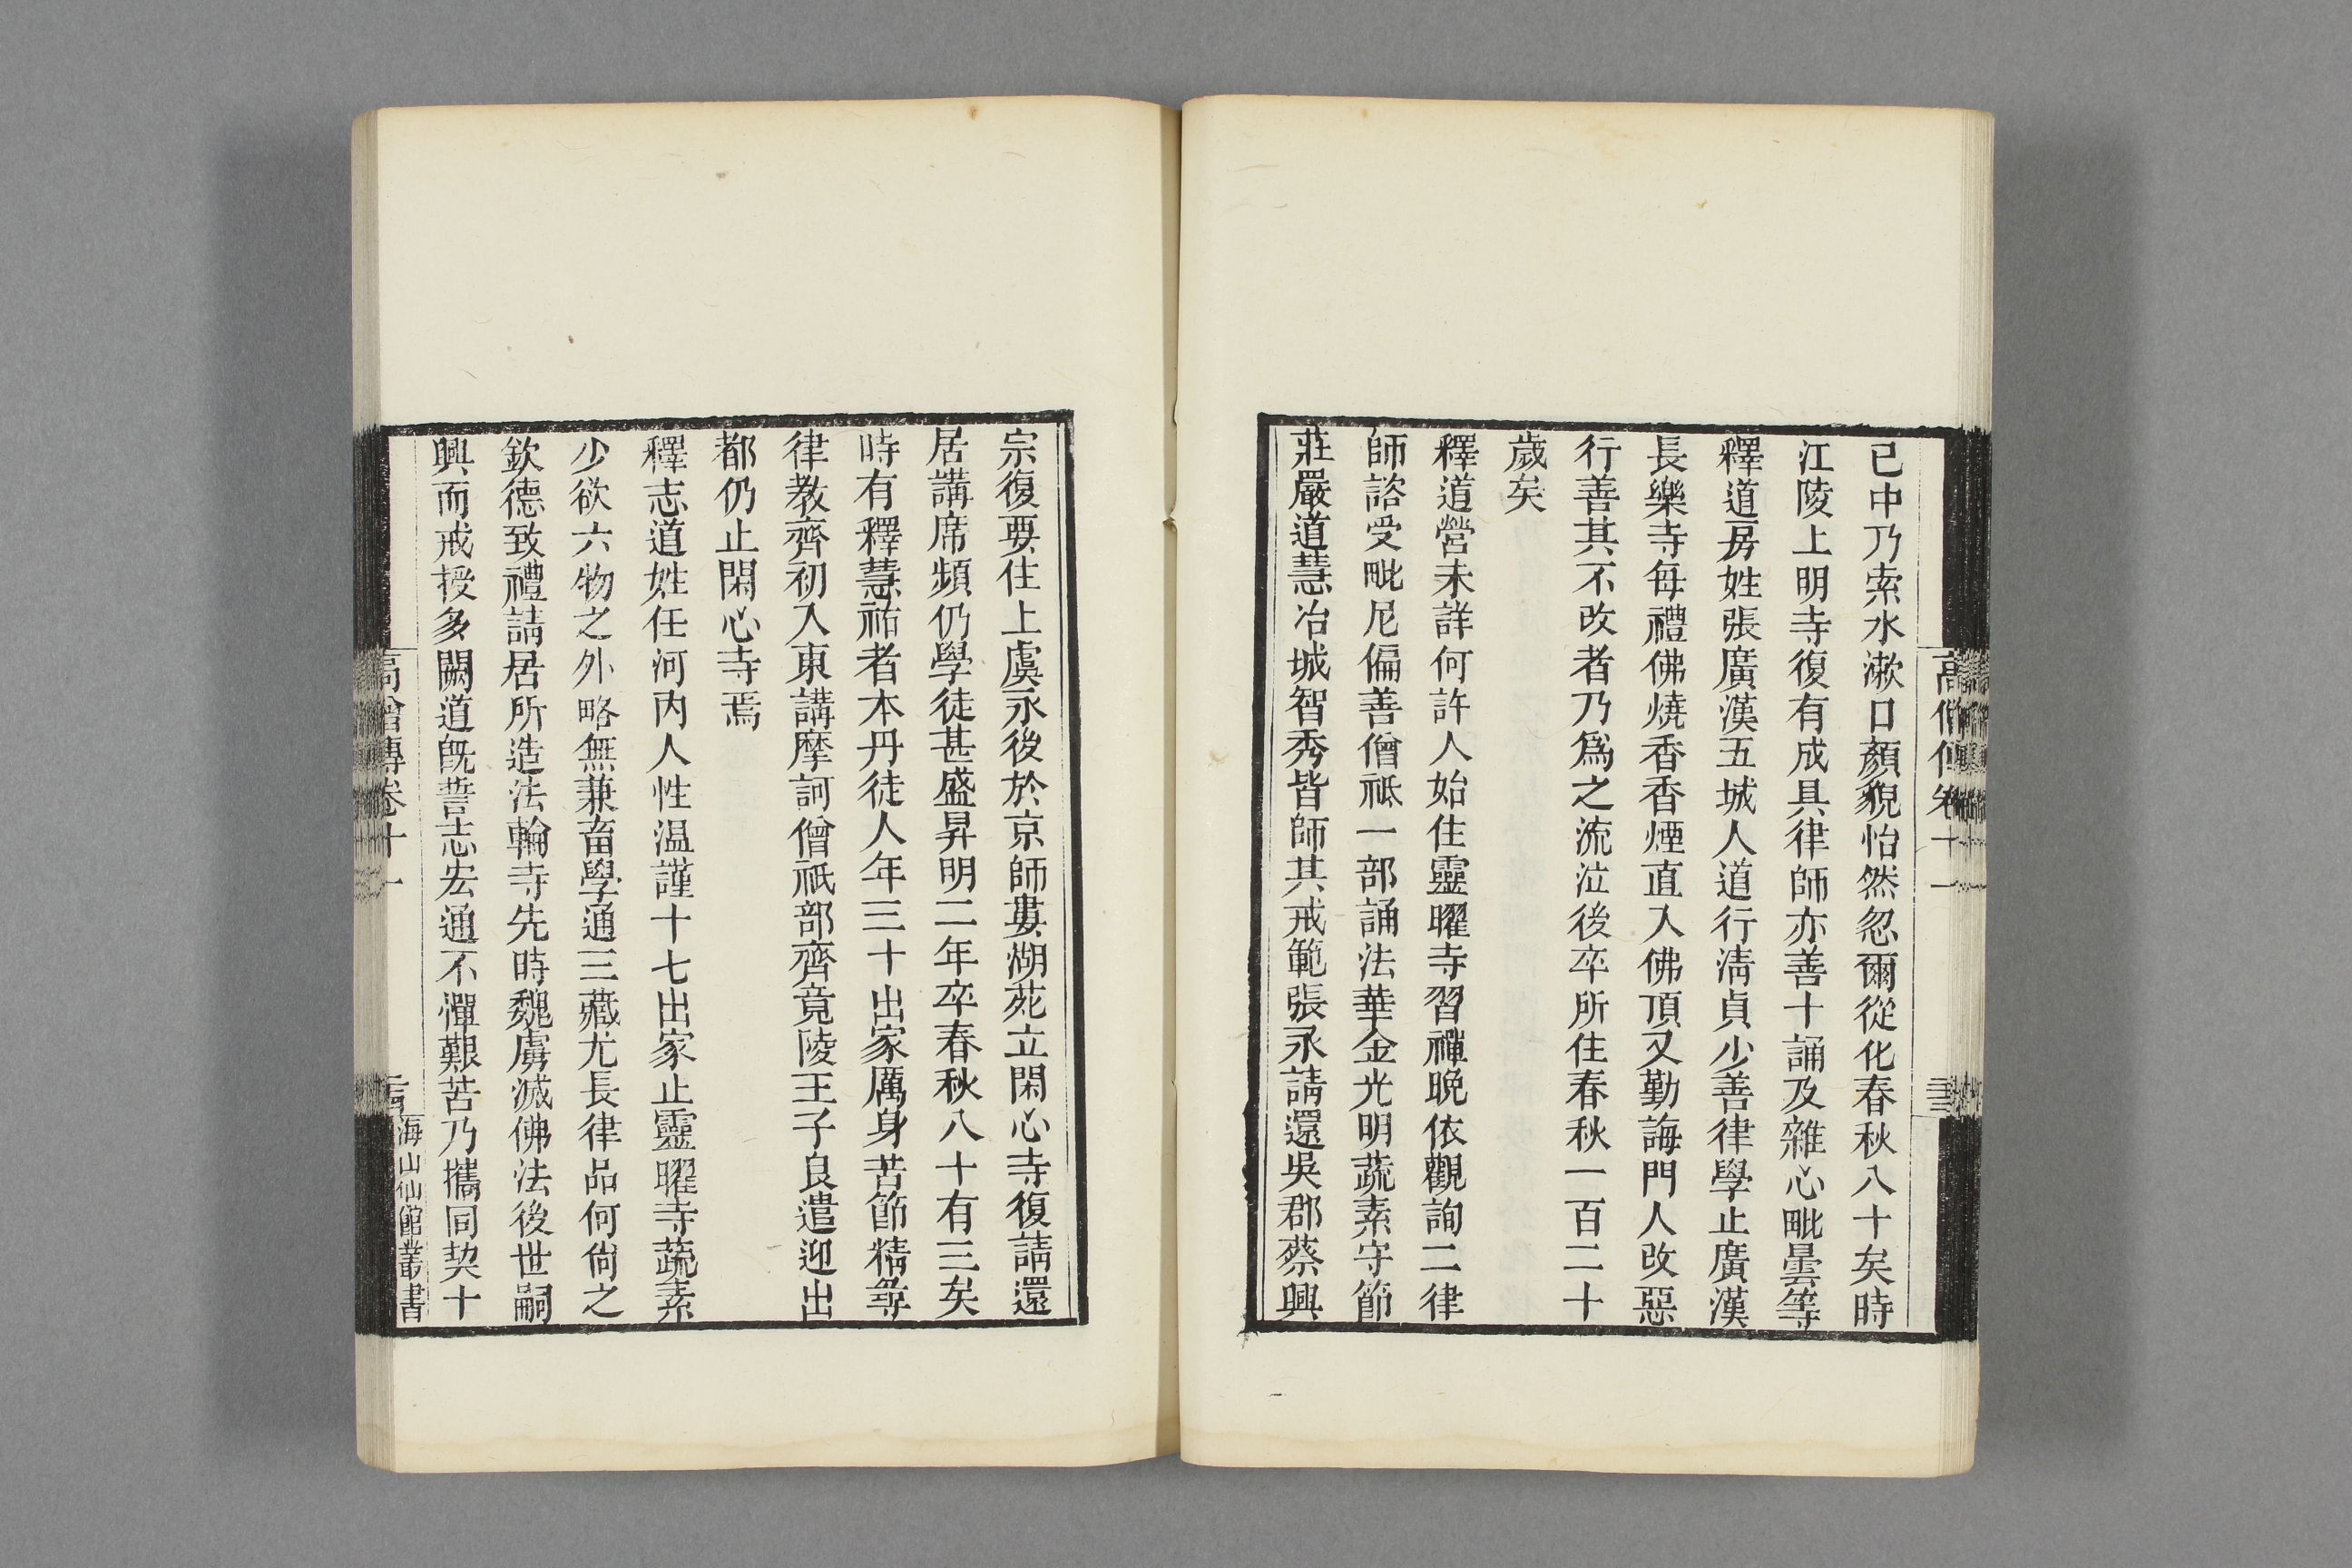 已中乃索水漱口顏貌怡然忽爾從化春秋八十矣時
江陵上明寺復有成具律師亦善十誦及雜心毗曇等
釋道房姓張廣漢五城人道行淸貞少善律學止廣漢
長樂寺每禮佛燒香香煙直入佛頂又勤誨門人改惡
行善其不改者乃爲之流泣後卒所住春秋一百二十
歲矣
釋道營未詳何許人始住靈曜寺習禪晚依觀詢二律
師諮受毗尼偏善僧祗一部誦法華金光明蔬素守節
莊嚴道慧冶城智秀皆師其戒範張永請還吳郡蔡興
宗復要住上虞永後於京師婁湖苑立閑心寺復請還
居講席頻仍學徒甚盛昇明二年卒春秋八十有三矣
時有釋慧祐者本丹徒人年三十出家厲身苦節精尋
律教齊初入東講摩訶僧祇部齊竟陵王子良遣迎出
都仍止閑心寺焉
釋志道姓任河內人性温謹十七出家止靈曜寺蔬素
少欲六物之外略無兼畜學通三藏尤長律品何尙之
欽德致禮請居所造法輪寺先時魏虜滅佛法後世嗣
興而戒授多闕道旣誓志宏通不憚艱苦乃攜同契十
高僧傳卷十一
海山仙館叢書